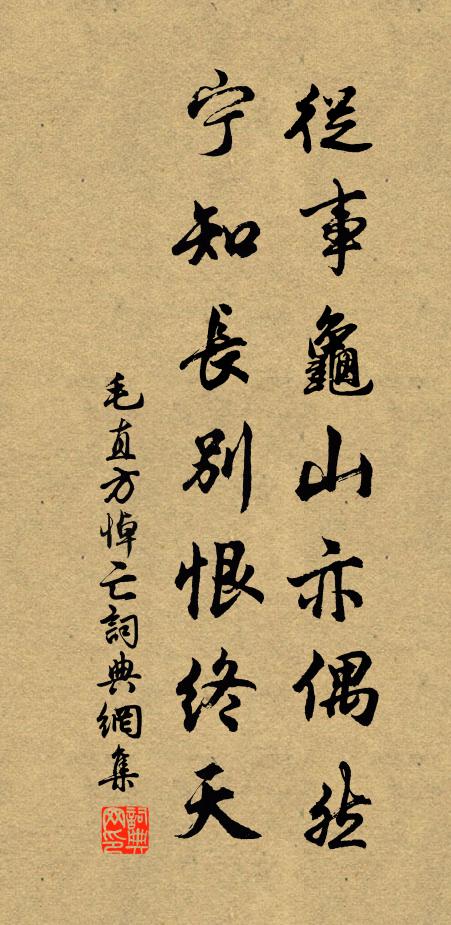 從事龜山亦偶然
宁知長別恨終天
毛直方悼亡詞典網集
詞典网印